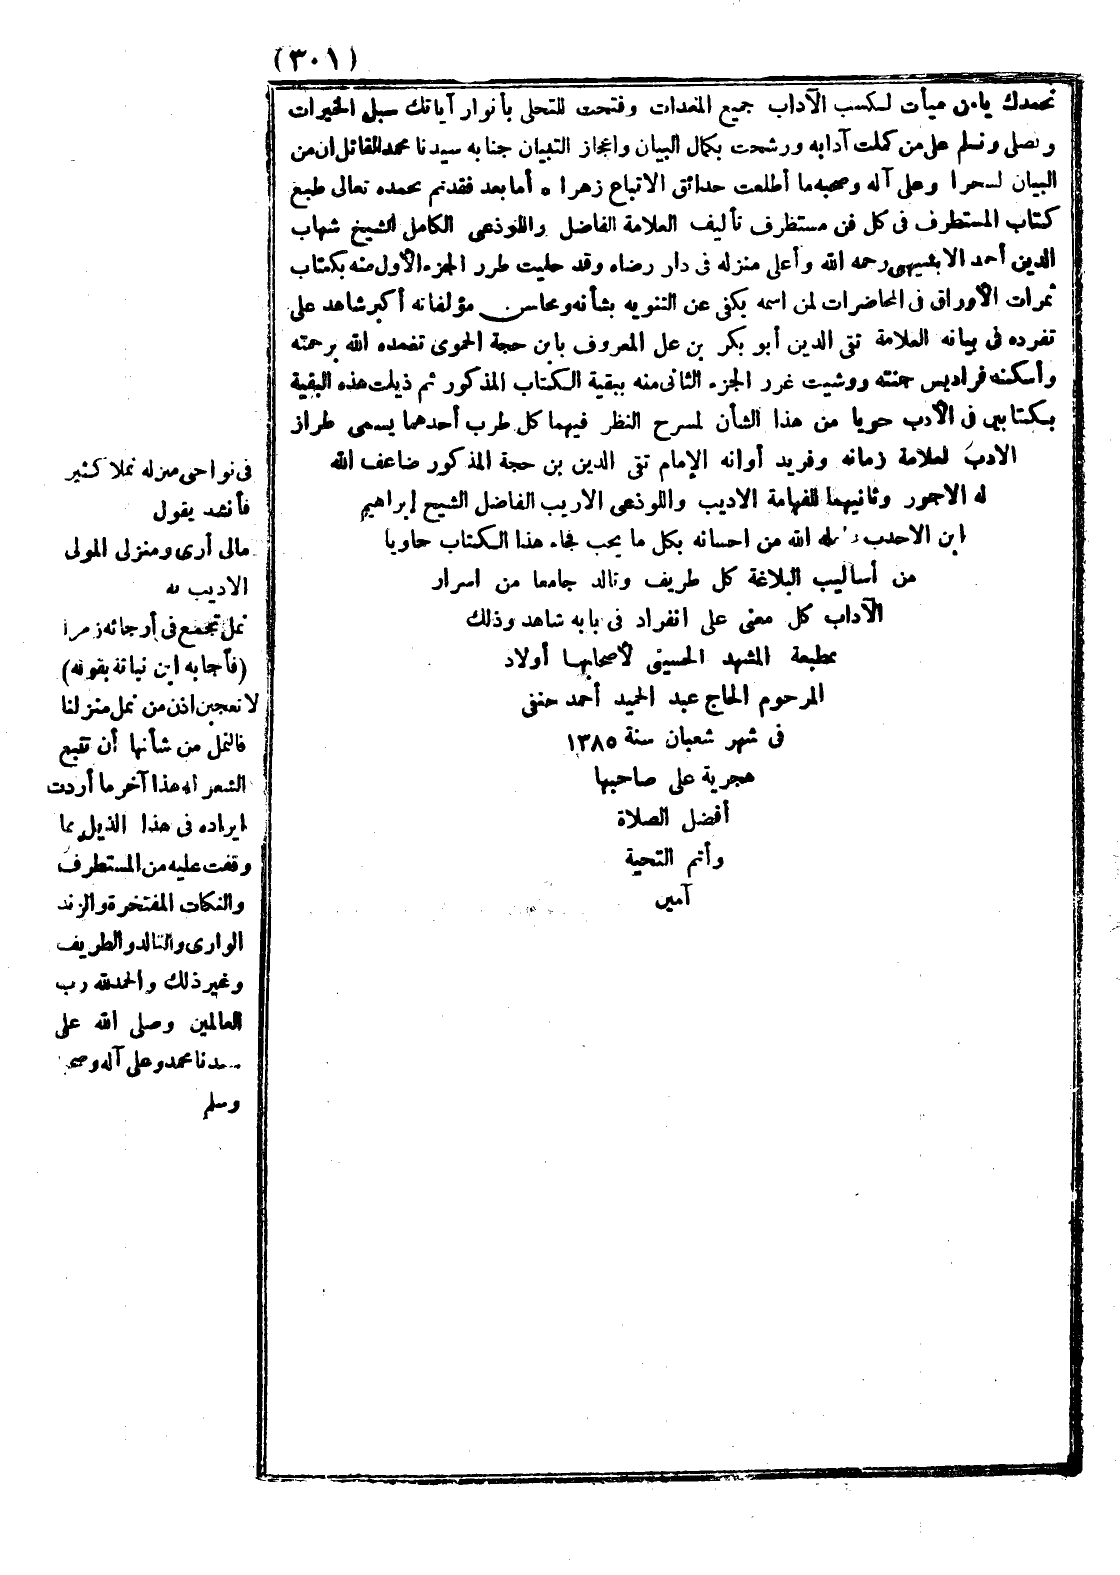 (٣٠١)
نحمدك يا من هيأت لكسب الآداب جميع المعدات وفتحت للتحلي بأنوار آياتك سبل الخيرات
ونصلي ونسلم على من كملت آدابه ورشحت بكمال البيان واعجاز التبيان جنابه سيدنا محمد القائل ان من
البيان لسحرا وعلى آله وصحبه ما أطلعت حدائق الاتباع زهرا * أما بعد فقد تم بحمده تعالى طبع
كتاب المستطرف فى كل فن مستظرف تأليف العلامة الفاضل واللوذعى الكامل الشيخ شهاب
الدين أحمد الابشيهى رحمه الله وأعلى منزله فى دار رضاه وقد حليت طرر الجزء الأول منه بكتاب
ثمرات الأوراق فى المحاضرات لمن اسمه يكفى عن التنويه بشأنه ومحاسن مؤلفاته أكبر شاهد على
تفرده فى بيانه العلامة تقى الدين أبو بكر بن على المعروف بابن حجة الحموى تغمده الله برحمته
وأسكنه فراديس جنته ووشيت غرر الجزء الثانى منه ببقية الكتاب المذكور ثم ذيلت هذه البقية
بكتابين فى الأدب حويا من هذا الشأن لمسرح النظر فيهما كل طرب أحدهما يسمى طراز
الادب لعلامة زمانه وفريد أوانه الإمام تقى الدين بن حجة المذكور ضاعف الله
له الاجور وثانيهما للفهامة الاديب واللوذعى الاريب الفاضل الشيخ إبراهيم
ابن الاحدب الله من احسانه بكل ما يحب فجاء هذا الكتاب حاويا
من أساليب البلاغة كل طريف وتالد جامعا من اسرار
الآداب كل معنى على انفراد فى بابه شاهد وذلك
بمطبعة المشهد الحسينى لأصحابها أولاد
المرحوم الحاج عبد الحميد أحمد حنفى
فى شهر شعبان سنة ١٣٨٥
هجرية على صاحبها
أفضل الصلاة
وأتم التحية
آمين
فى نواحى منزله نملا كثير
فأنشد يقول
مالى أرى ومنزلى المولى
الاديب به
نمل تجمع فى أرجائه زمرا
(فأجابه ابن نباتة بقوله)
لا تعجبن اذن من نمل منزلنا
فالنمل من شأنها أن تتبع
الشعر اه هذا آخر ما أردت
ايراده فى هذا الذيل مما
وقفت عليه من المستطرف
والنكات المفتخرة والزند
الوارى والتالد والطريف
وغير ذلك والحمد لله رب
العالمين وصلى الله على
سيدنا محمد وعلى آله وصحبه
وسلم